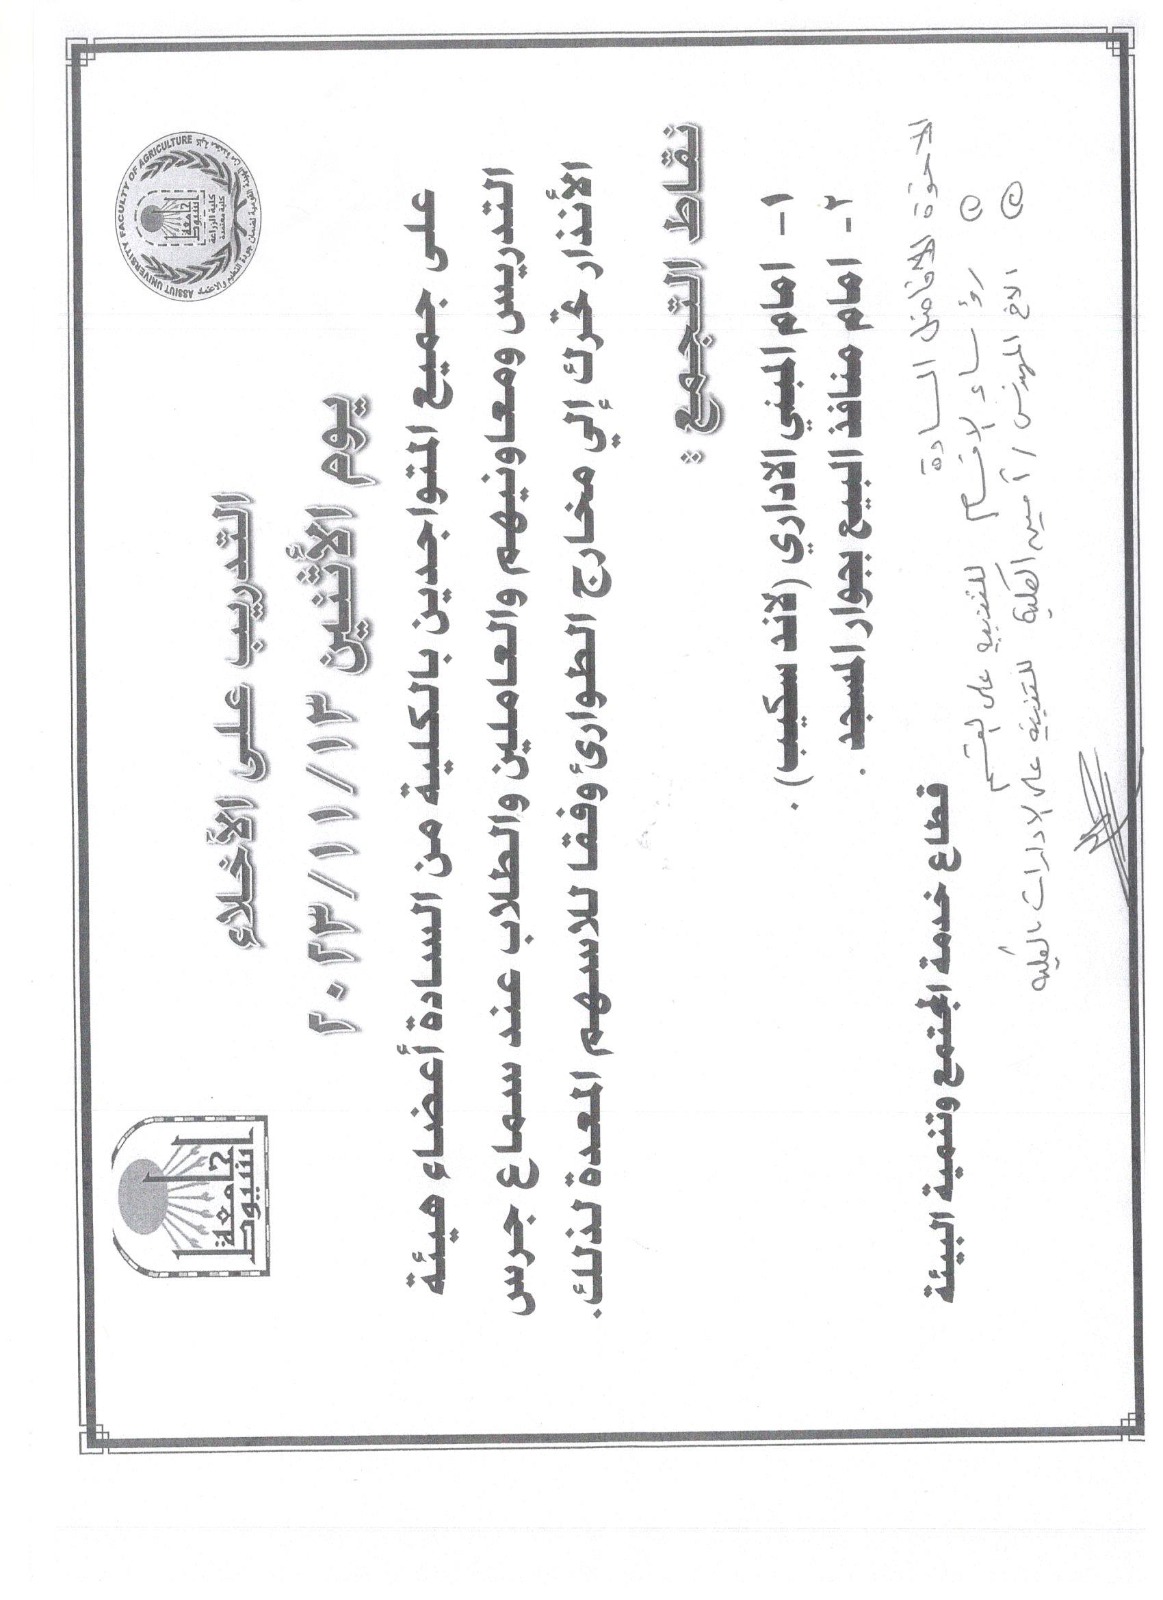 ASSIUT UNIVERSITY FACULTY OF AGRICULTURE
جامعة
أسيوط
كلية الزراعة
كلية معتمدة
جامعة
أسيوط
التدريب على الأخلاء
يوم الأثنين ٢٠٢٣/١١/١٣
على جميع المتواجدين بالكلية من السادة أعضاء هيئة
التدريس ومعاونيهم والعاملين والطلاب عند سماع جرس
الأنذار تحرك إلي مخارج الطوارئ وفقا للاسهم المعدة لذلك.
نقاط التجمع :
١- امام المبني الاداري (لاند سكيب) .
٢- امام منافذ البيع بجوار المسجد .
قطاع خدمة المجتمع وتنمية البيئة
الاخوة الافاضل السادة
رؤساء الاقسام للتنبيه على القسم
الاخ المهندس / أمين الكلية للتنبيه على الادارات بالكلية